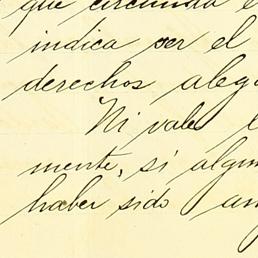 que circunda e
indica ser el
derechos aleg
Ni vale l
mente, si algun
haber sido an